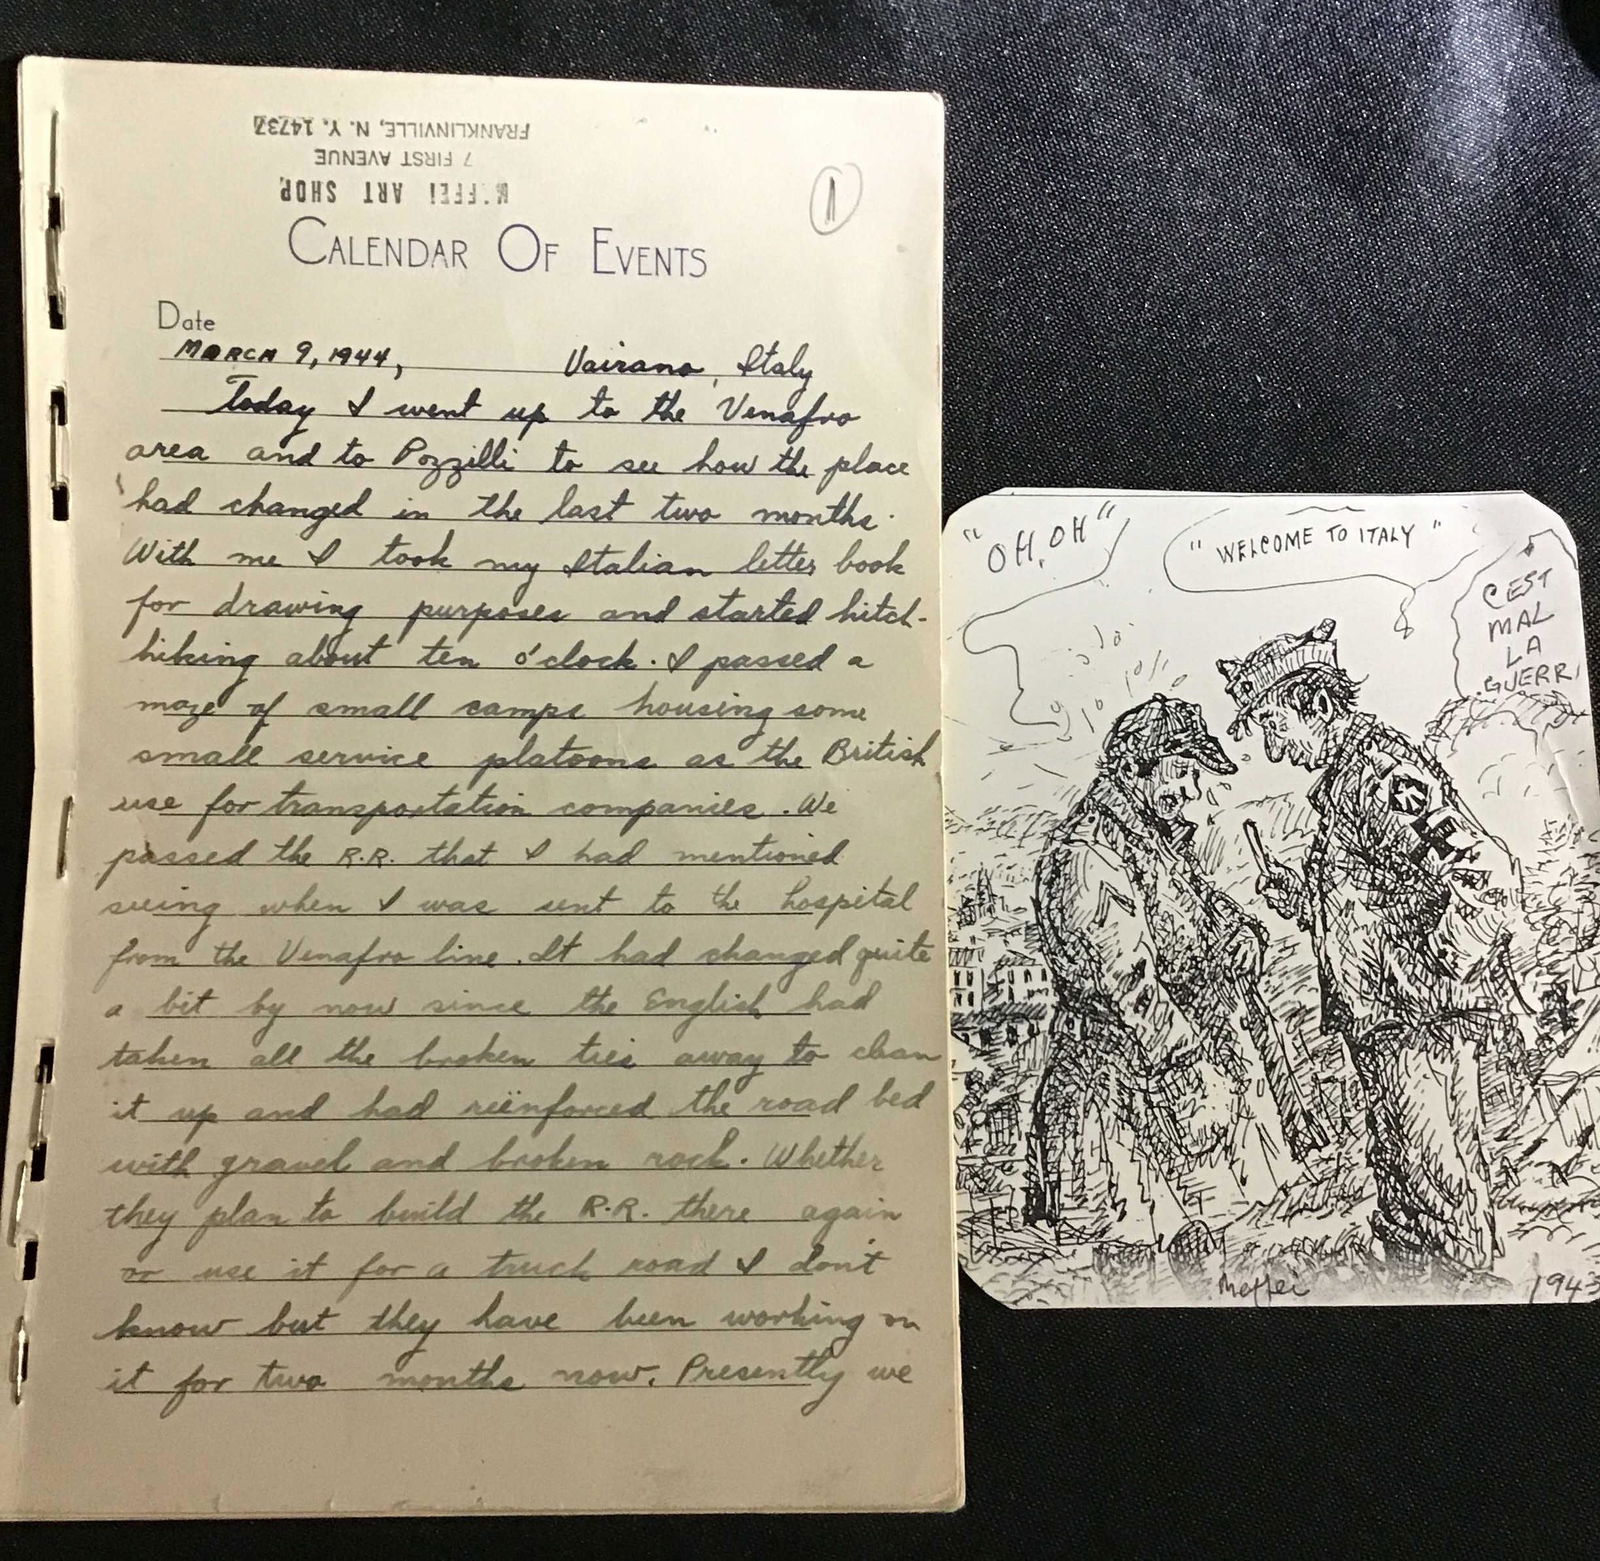 MAFFEI ART SHOP
7 FIRST AVENUE
FRANKLINVILLE, N. Y. 14737
1
CALENDAR OF EVENTS
Date
MARCH 9, 1944, Vairano, Italy
Today I went up to the Venafro
area and to Pozzilli to see how the place
had changed in the last two months.
With me I took my Italian letter book
for drawing purposes and started hitch-
hiking about ten o'clock. I passed a
maze of small camps housing some
small service platoons as the British
use for transportation companies. We
passed the R.R. that I had mentioned
seeing when I was sent to the hospital
from the Venafro line. It had changed quite
a bit by now since the English had
taken all the broken ties away to clean
it up and had reïnforced the road bed
with gravel and broken rock. Whether
they plan to build the R.R. there again
or use it for a truck road I don't
know but they have been working on
it for two months now. Presently we
"OH, OH"
"WELCOME TO ITALY"
C'EST
MAL
LA
GUERR
Maffei
1943